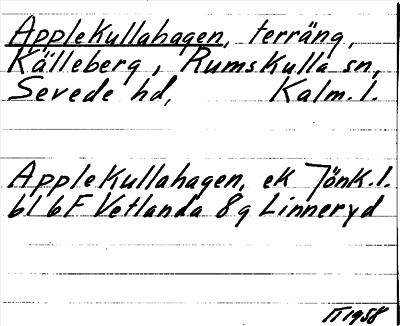 Applekullahagen, terräng,
Källeberg, Rumskulla sn,
Sevede hd, Kalm.l.
Applekullahagen, ek Jönk.l.
bl 6F Vetlanda 8g Linneryd
IT 1958